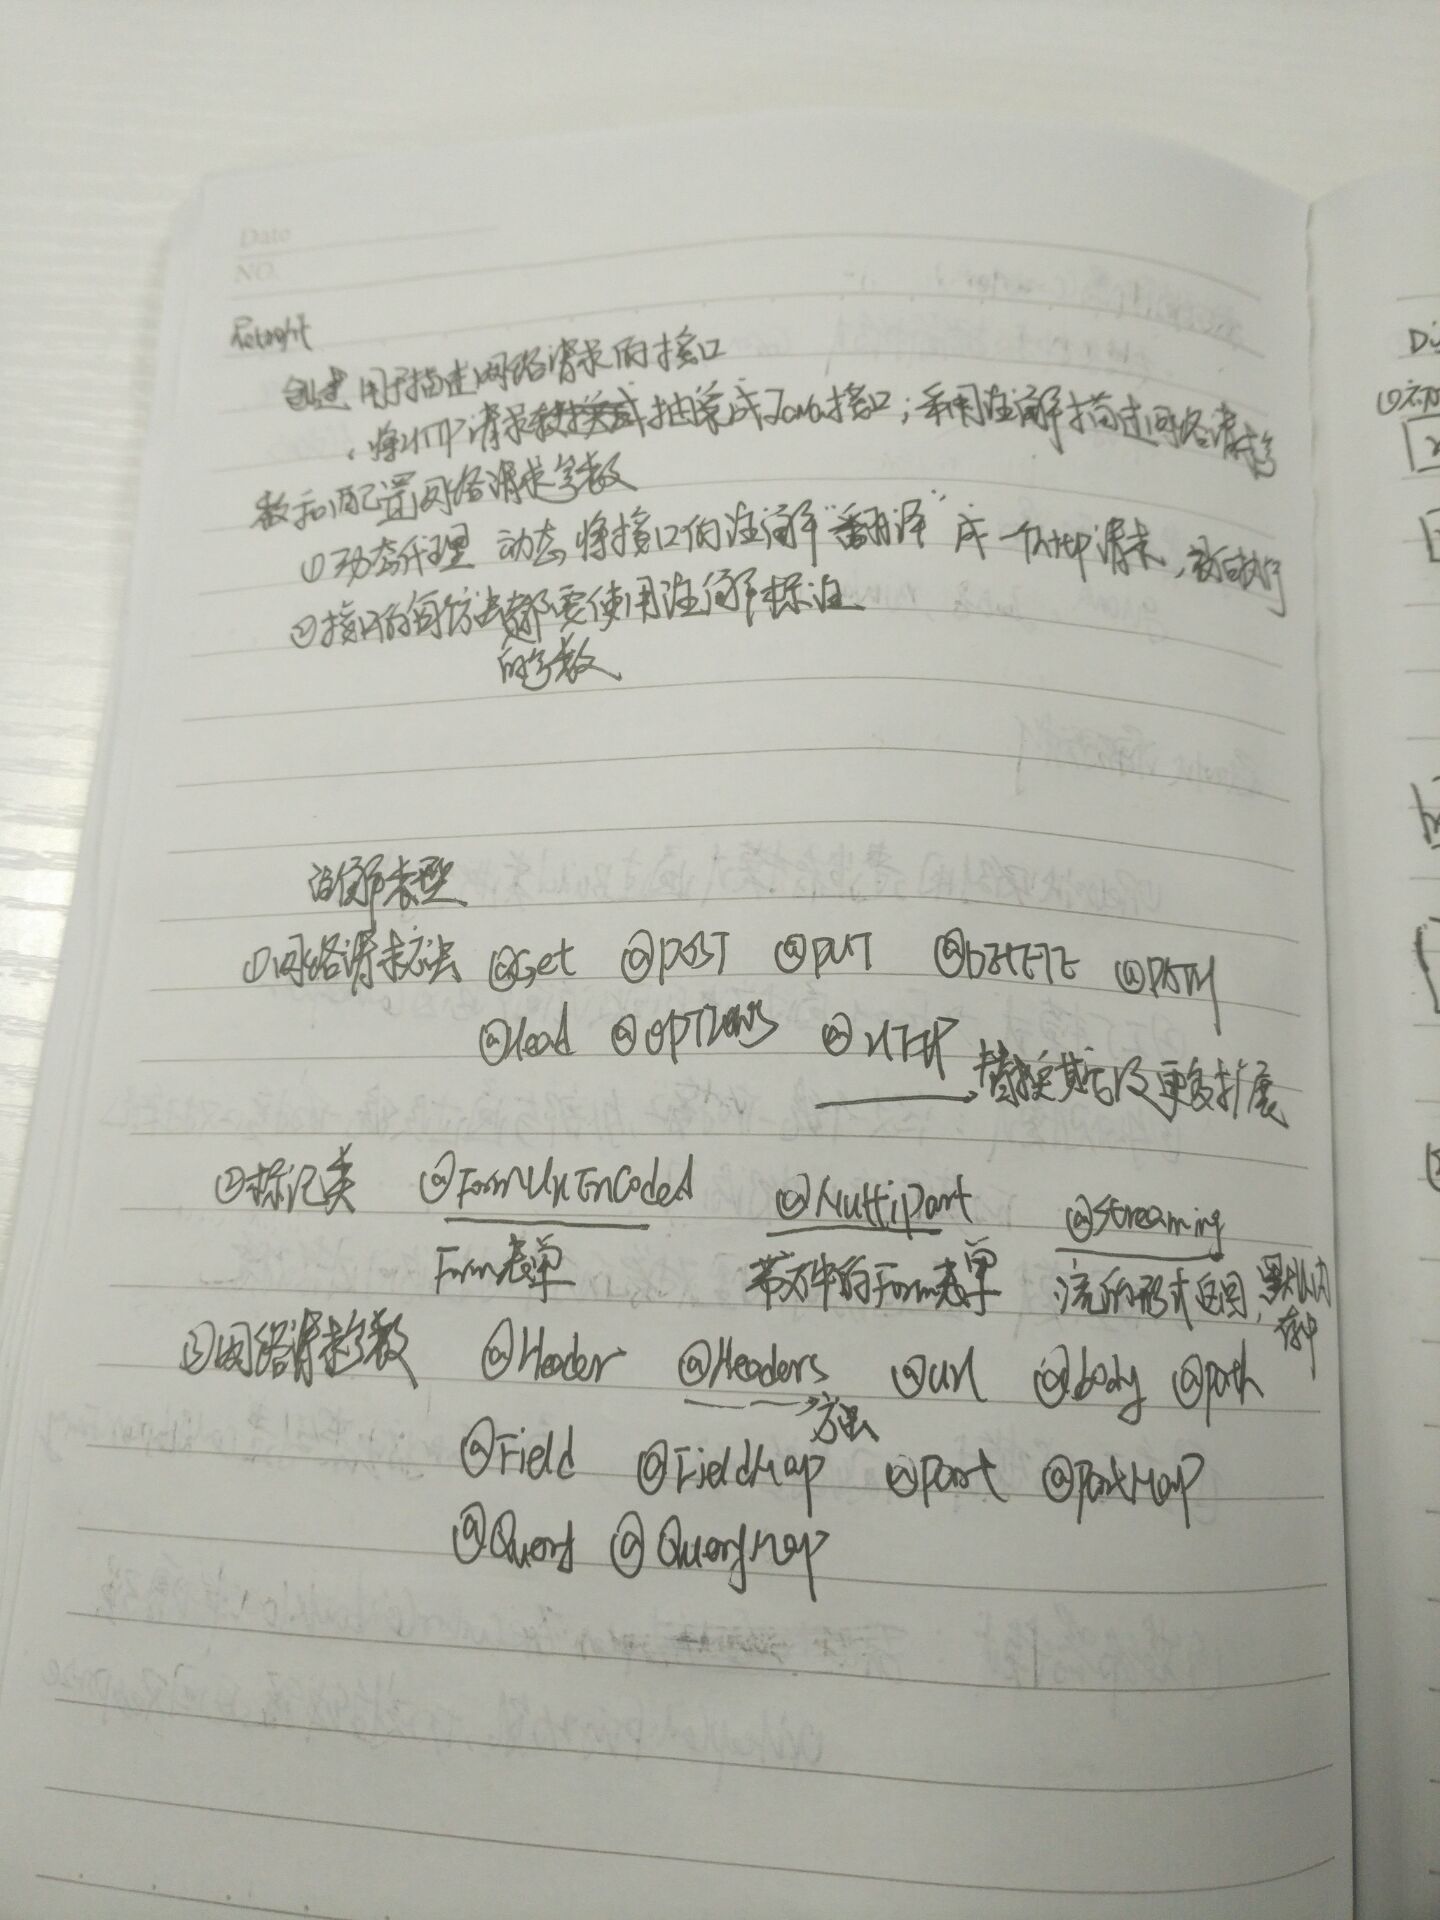 Date
NO.
Retrofit
创建用于描述网络请求的接口
将HTTP请求抽象成Java接口；采用注解描述网络请求参
数和配置网络请求参数
①动态代理 动态将接口的注解“翻译”成一个Http请求，最后执行
②接口的每个方法的参数都要使用注解标注
注解类型
①网络请求方法 @Get @POST @PUT @DELETE @PATH
@Head @OPTIONS @HTTP
替换其后及更多扩展
②标记类 @FormUrlEncoded @MultiPart @Streaming
Form表单 带文件的Form表单 流的形式返回，默认内存中
③网络请求参数 @Header @Headers @Url @body @path
方法
@Field @FieldMap @Part @PartMap
@Query @QueryMap